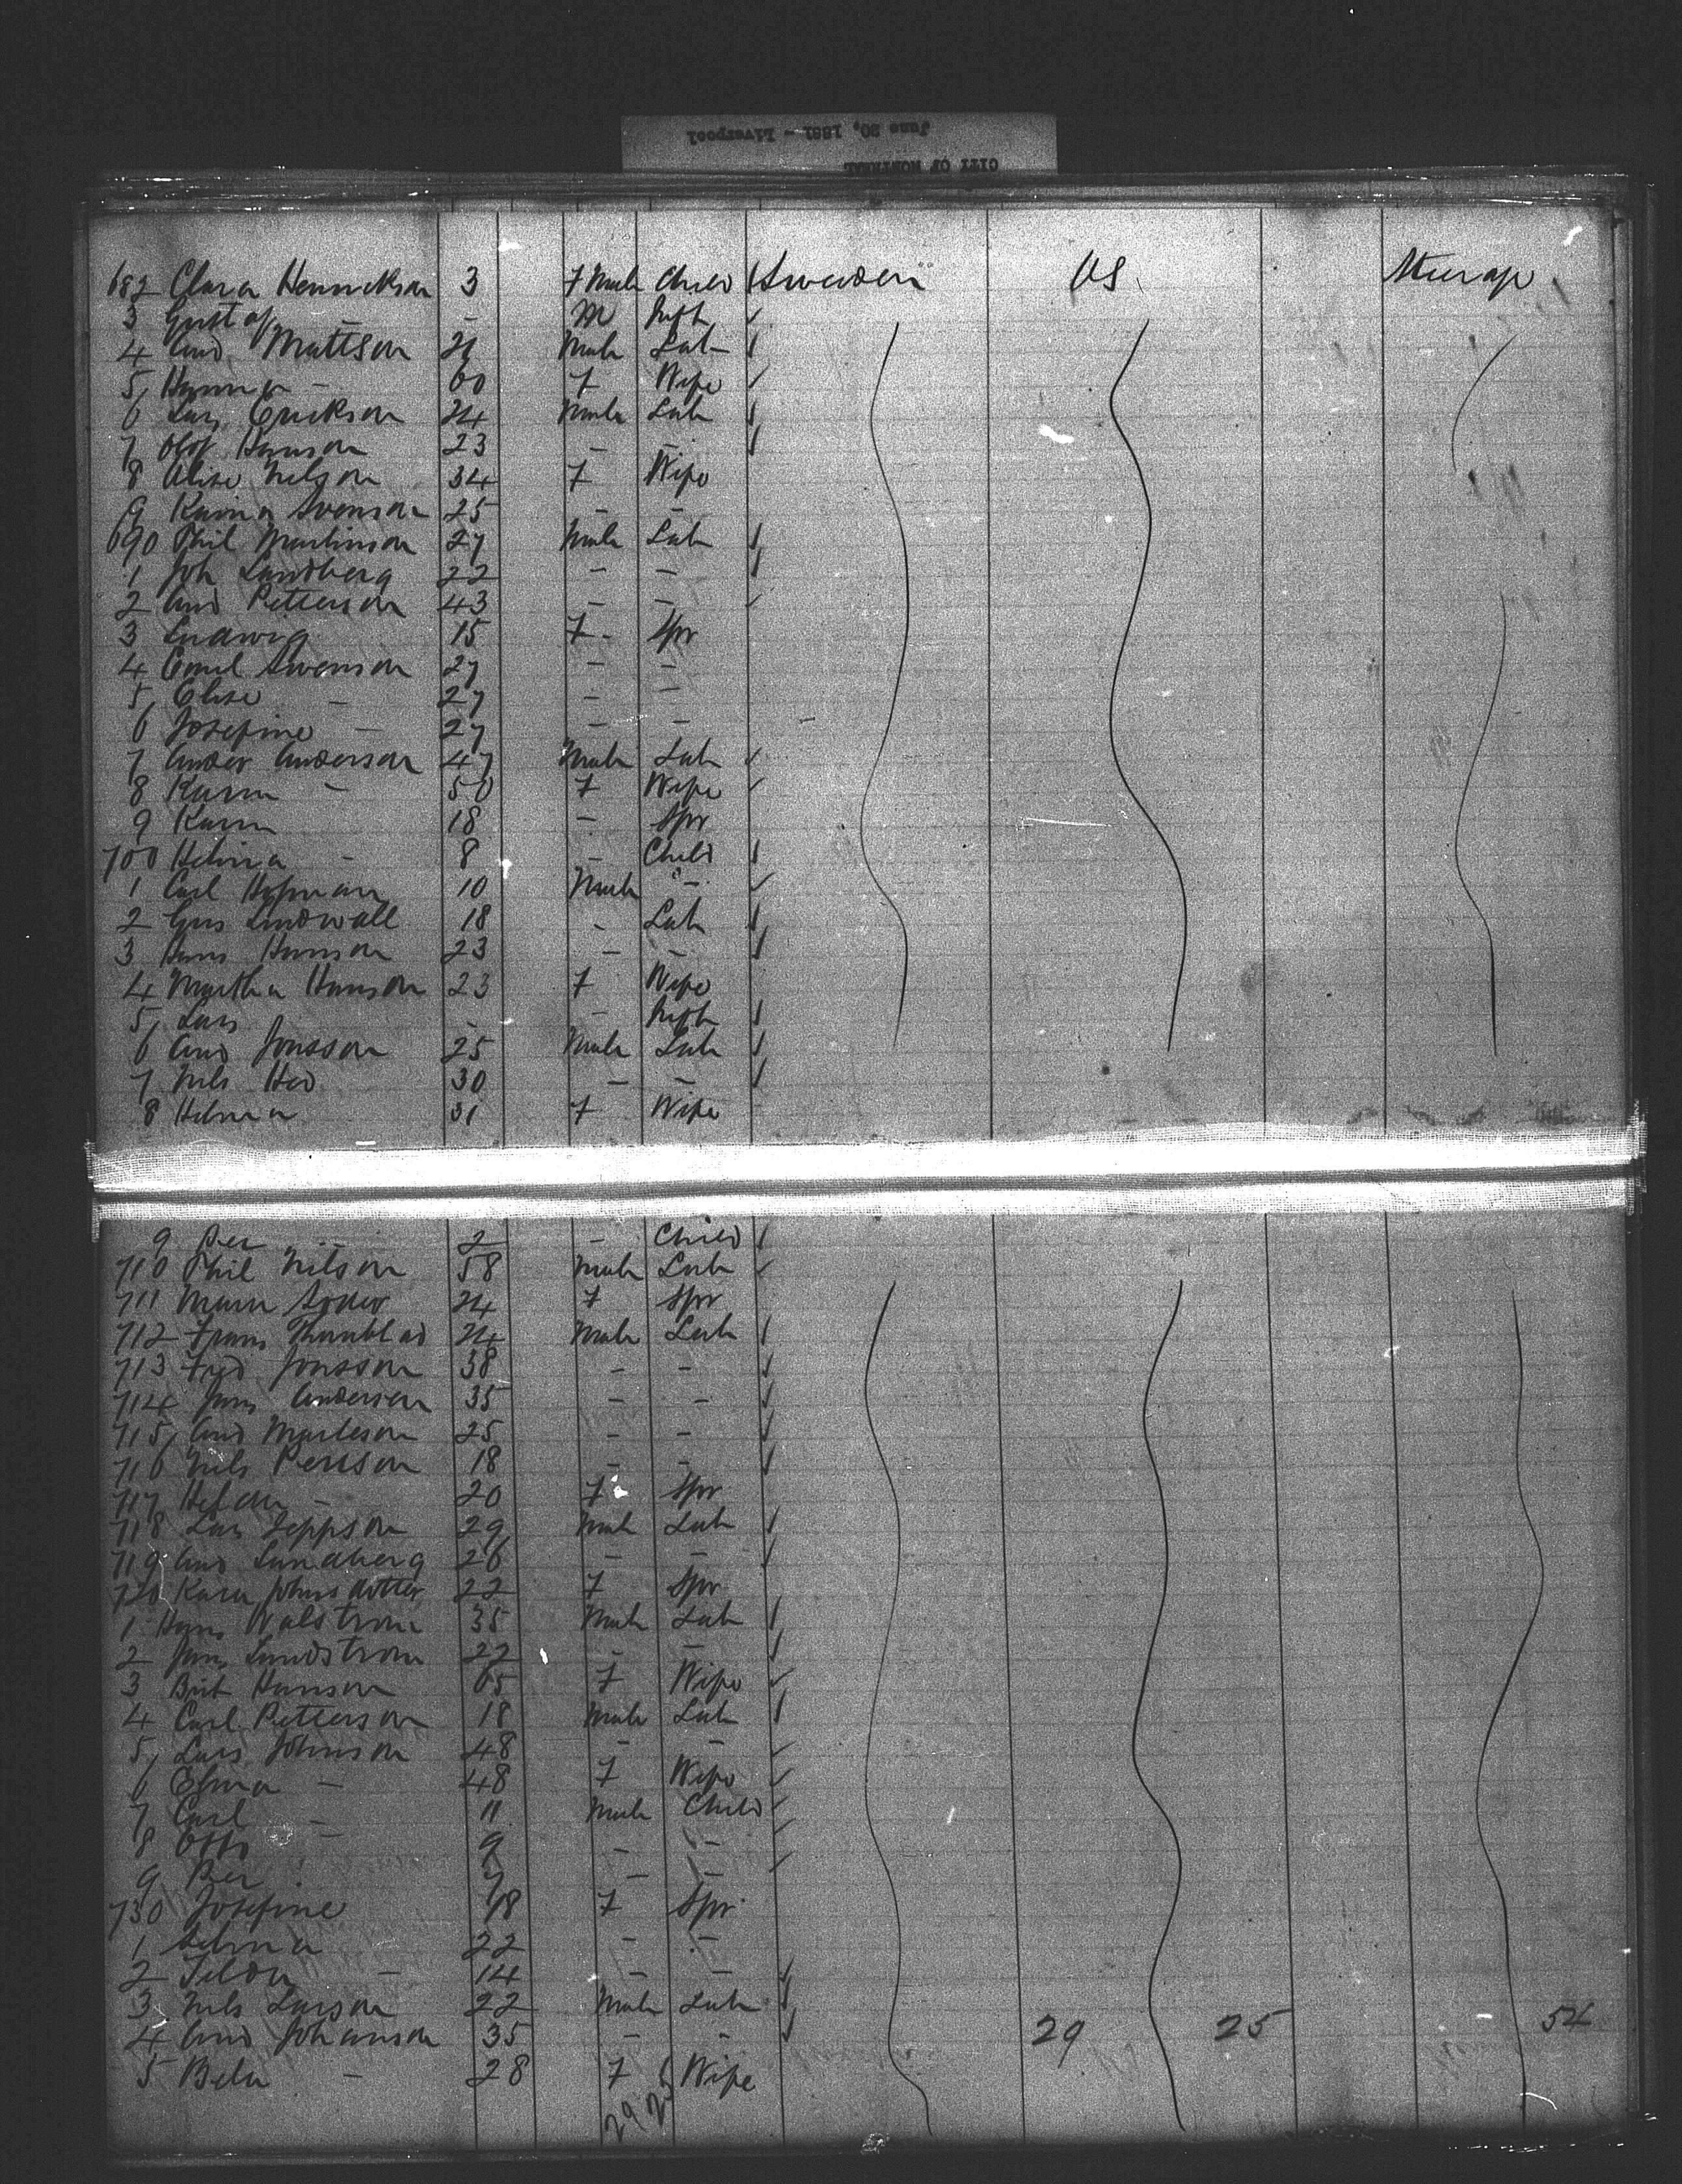 CITY OF MONTREAL
June 20, 1881 - Liverpool
682 Clara Henrickson 3 F Male Child Sweden US Steerage
3 Gustaf - - M Inft
4 And Mattson 21 Male Lab
5 Hanna - 60 F Wife
6 Lars Erickson 24 Male Lab
7 Olof Hanson 23 - -
8 Alise Nilson 34 F Wife
9 Karna Svenson 25 - -
690 Phil Martinson 27 Male Lab
1 Joh Lundberg 22 - -
2 And Petterson 43 - -
3 Ludwig 15 F - Spr
4 Emil Swenson 27 - -
5 Elise - 27 - -
6 Josefine - 27 - -
7 Ander Anderson 47 Male Lab
8 Karin - 50 F Wife
9 Karin 18 - Spr
700 Helma - 8 - Child
1 Carl Hofman 10 Male -
2 Gus Lindwall 18 - Lab
3 Hans Hanson 23 - -
4 Martha Hanson 23 F Wife
5 Lars - - Inft
6 And Jonsson 25 Male Lab
7 Nils 30 - -
8 Helma 31 F Wife
9 Per - 2 - Child
710 Phil Nilson 58 Male Lab
711 24 F Spr
712 Frans 24 Male Lab
713 Jonsson 38 - -
714 Jans Anderson 35 - -
715 And 25 - -
716 Nils Persson 18 - -
717 - 20 F Spr
718 Lars Jeppson 29 Male Lab
719 And Lundberg 26 - -
720 Kara Johnsdotter 22 F Spr
1 Hans Walstrom 35 Male Lab
2 Jans Lundstrom 22 - -
3 Brit Hanson 65 F Wife
4 Carl Petterson 18 Male Lab
5 Lars Johnson 48 - -
6 Elma - 48 F Wife
7 Carl - 11 Male Child
8 Otto - 9 - -
9 Per 7 - -
730 Josefine 18 F Spr
1 Selma 22 - -
2 Tilda - 14 - -
3 Nils Larson 22 Male Lab
4 And Johanson 35 - - 29 25 54
5 Bela - 28 F Wife
29 25